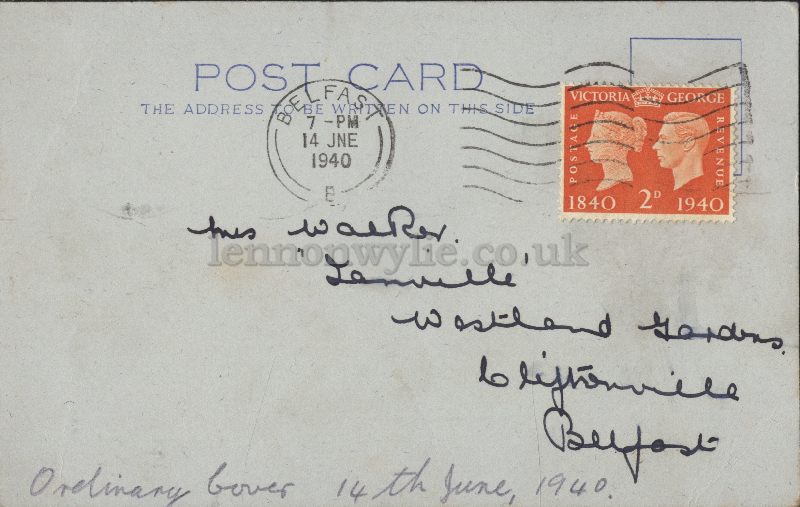 POST CARD
THE ADDRESS TO BE WRITTEN ON THIS SIDE
BELFAST
7 - PM
14 JNE
1940
B
VICTORIA GEORGE
POSTAGE
REVENUE
1840 2D 1940
Mrs Walker.
lennonwylie.co.uk
Westland Gardens.
Cliftonville
Belfast
Ordinary Cover 14th June, 1940.